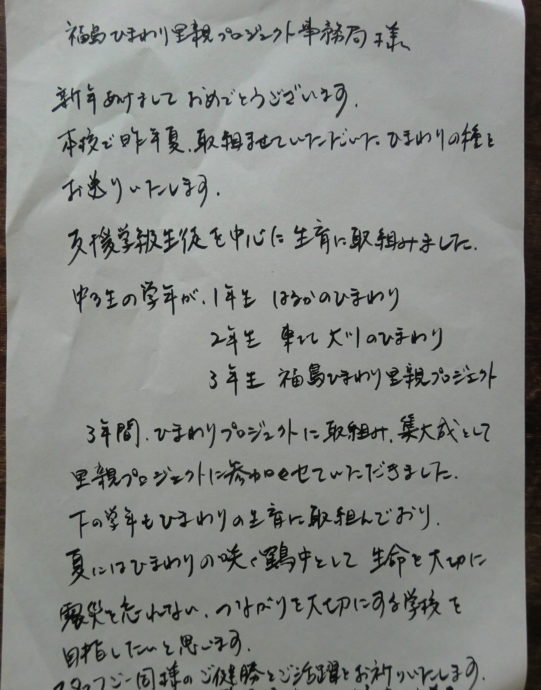 福島ひまわり里親プロジェクト事務局様
新年あけましておめでとうございます。
本校で昨年夏、取組ませていただいた、ひまわりの種を
お送りいたします。
支援学級生徒を中心に生育に取組みました。
中3生の学年が、1年生 はるかのひまわり
2年生 東北 大川のひまわり
3年生 福島ひまわり里親プロジェクト
3年間、ひまわりプロジェクトに取組み、集大成として
里親プロジェクトに参加させていただきました。
下の学年もひまわりの生育に取組んでおり、
夏にはひまわりの咲く 中として 生命を大切に
震災を忘れない、つながりを大切にする学校を
目指したいと思います。
スタッフ一同様のご健勝とご活躍をお祈りいたします。